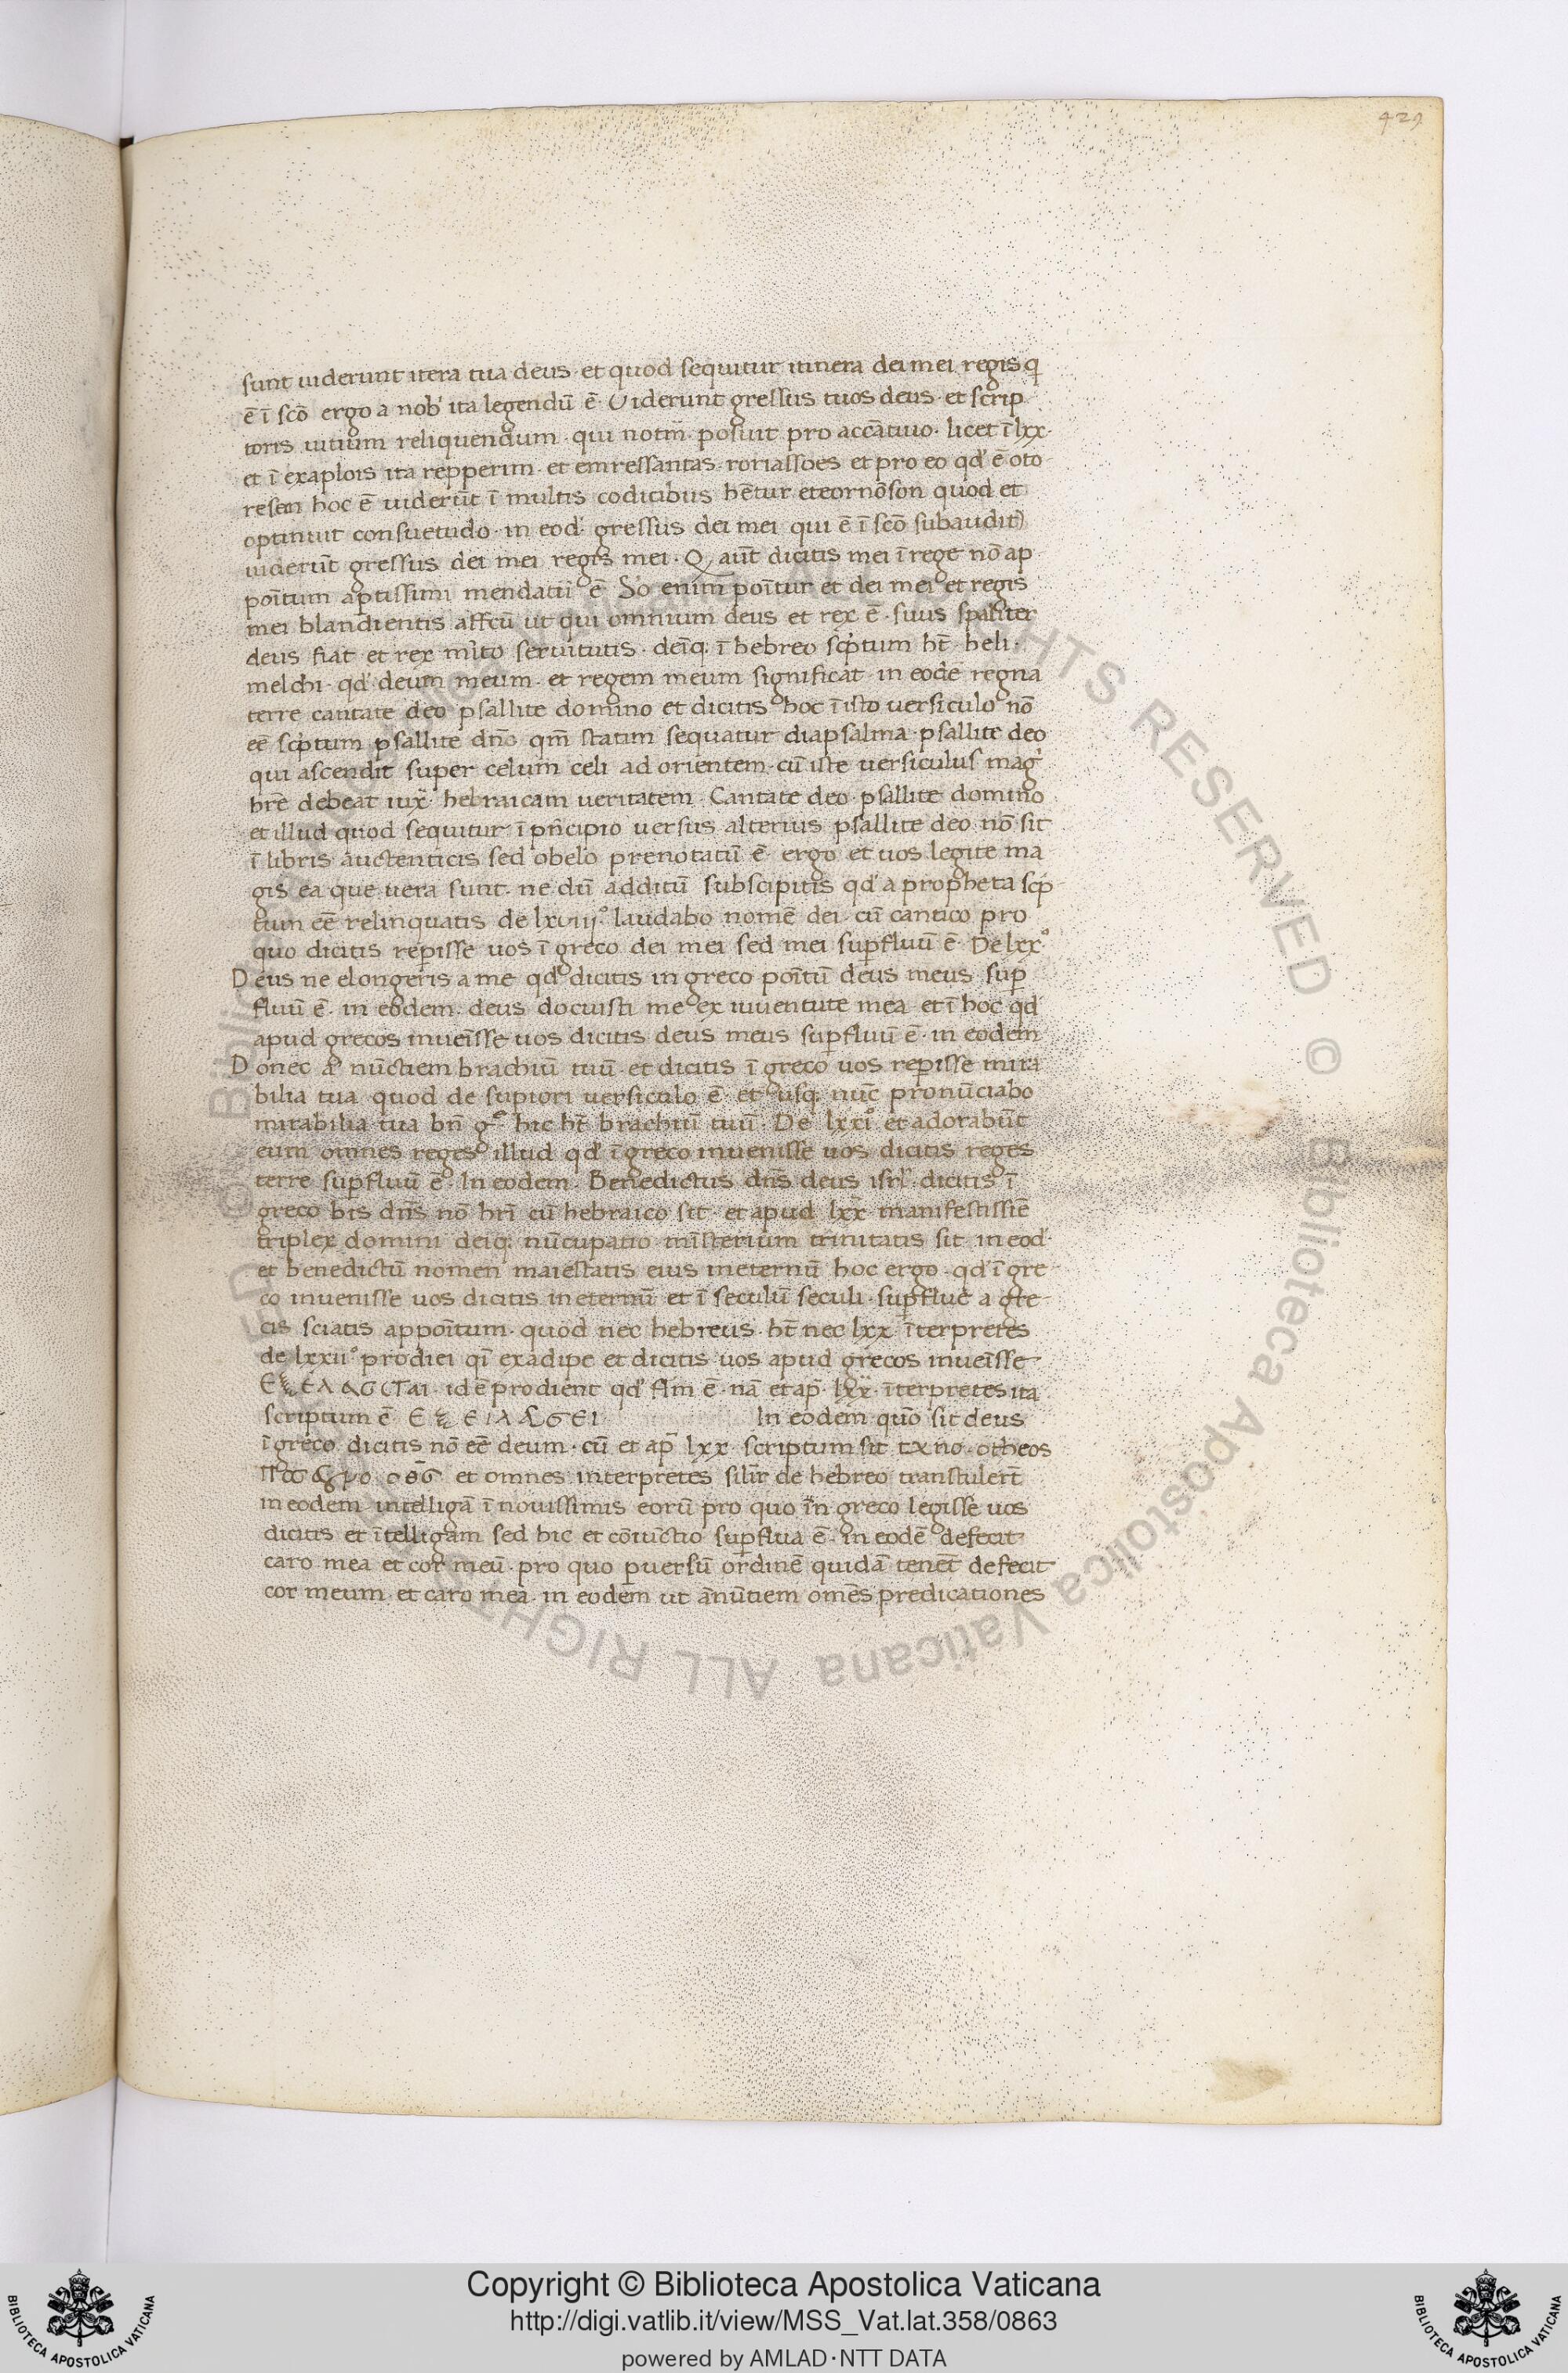 429
sunt uiderunt itera tua deus · et quod sequitur itinera dei mei regis q̃
ē ī scō ergo a nob' ita legendū ē · Uiderunt gressus tuos deus · et scrip
toris uitium reliquendum · qui notm̄ · posuit pro accātiuo · licet ī lxx ·
et ī exaplois ita repperim · et emressantas · roriassoes et pro eo qd' ē oto
resan hoc ē uiderūt ī multis codicibus hētur eteornōson quod et
optinuit consuetudo · in eod' gressus dei mei qui ē ī scō subaudit
uiderūt gressus dei mei regis mei · Q aūt dicitis mei ī rege nō ap
poītum aptissimi mendatii ē So enim poītur et dei mei et regis
mei blandientis affcū ut qui omnium deus et rex ē · suus spaliter
deus fiat · et rex mito seruitutis · deīq; ī hebreo scptum ht̄ · heli ·
melchi · qd' deum meum · et regem meum significat · in eodē regna
terre cantate deo psallite domino et dicitis hoc ī isto uersiculo nō
eē scptum psallite dn̄o qm̄ statim sequatur diapsalma · psallite deo
qui ascendit super celum celi ad orientem · cū iste uersiculus mag'
hrē debeat iux̄ · hebraicam ueritatem · Cantate deo · psallite domino
et illud quod sequitur ī pn̄cipio uersus alterius psallite deo nō sit
ī libris auctenticis sed obelo prenotatū ē · ergo et uos legite ma
gis ea que uera sunt · ne dū additū subscipitis qd' a propheta scp
tum eē relinquatis de lxviiiº laudabo nomē dei · cū cantico pro
quo dicitis repisse uos ī greco dei mei sed mei supfluū ē · De lxxº
Deus ne elongeris a me qd' dicitis in greco poītū deus meus sup
fluū ē · in eodem · deus docuisti me ex iuuentute mea · et ī hoc qd'
apud grecos inueīsse uos dicitis deus meus supfluū ē · in eodem
Donec nūctiem brachiū tuū · et dicitis ī greco uos repisse mira
bilia tua quod de supiori uersiculo ē · et usq; nūc pronūciabo
mirabilia tua bn̄ gº hic ht̄ brachiū tuū · De lxxiº et adorabūt
eum omnes reges illud qd' ī greco inuenisse uos dicitis reges
terre supfluū ē · In eodem · Benedictus dn̄s deus isrl' dicitis ī
greco bis dn̄s nō hrī cū hebraico sit · et apud lxx manifestissiē
triplex domini deiq; nūcupatio mīsterium trinitatis sit in eod'
et benedictū nomen maiestatis eius in eternū hoc ergo · qd' ī gre
co inuenisse uos dicitis in eternū et ī seculū seculi · supflue a gre
cis sciatis appoītum · quod nec hebreus · ht̄ nec lxx īterpretes
de lxxiiº prodiei qī exadipe et dicitis uos apud grecos inueīsse
id ē prodient qd' flm ē · nā et ap̄ · lxx · īterpretes ita
scriptum ē In eodem quō sit deus
ī greco dicitis nō eē deum · cū et ap̄ lxx scriptum sit txno · otheos
et omnes interpretes silir̄ de hebreo transtulert̄
in eodem intelligā ī nouissimis eorū pro quo in greco legisse uos
dicitis et ītelligam sed hic et cōiuctio supflua ē · in eodē defecit
caro mea et cor meū · pro quo puersū ordinē quidā tenēt defecit
cor meum · et caro mea · in eodem ut anūtiem omēs predicationes
Copyright © Biblioteca Apostolica Vaticana
http://digi.vatlib.it/view/MSS_Vat.lat.358/0863
powered by AMLAD·NTT DATA